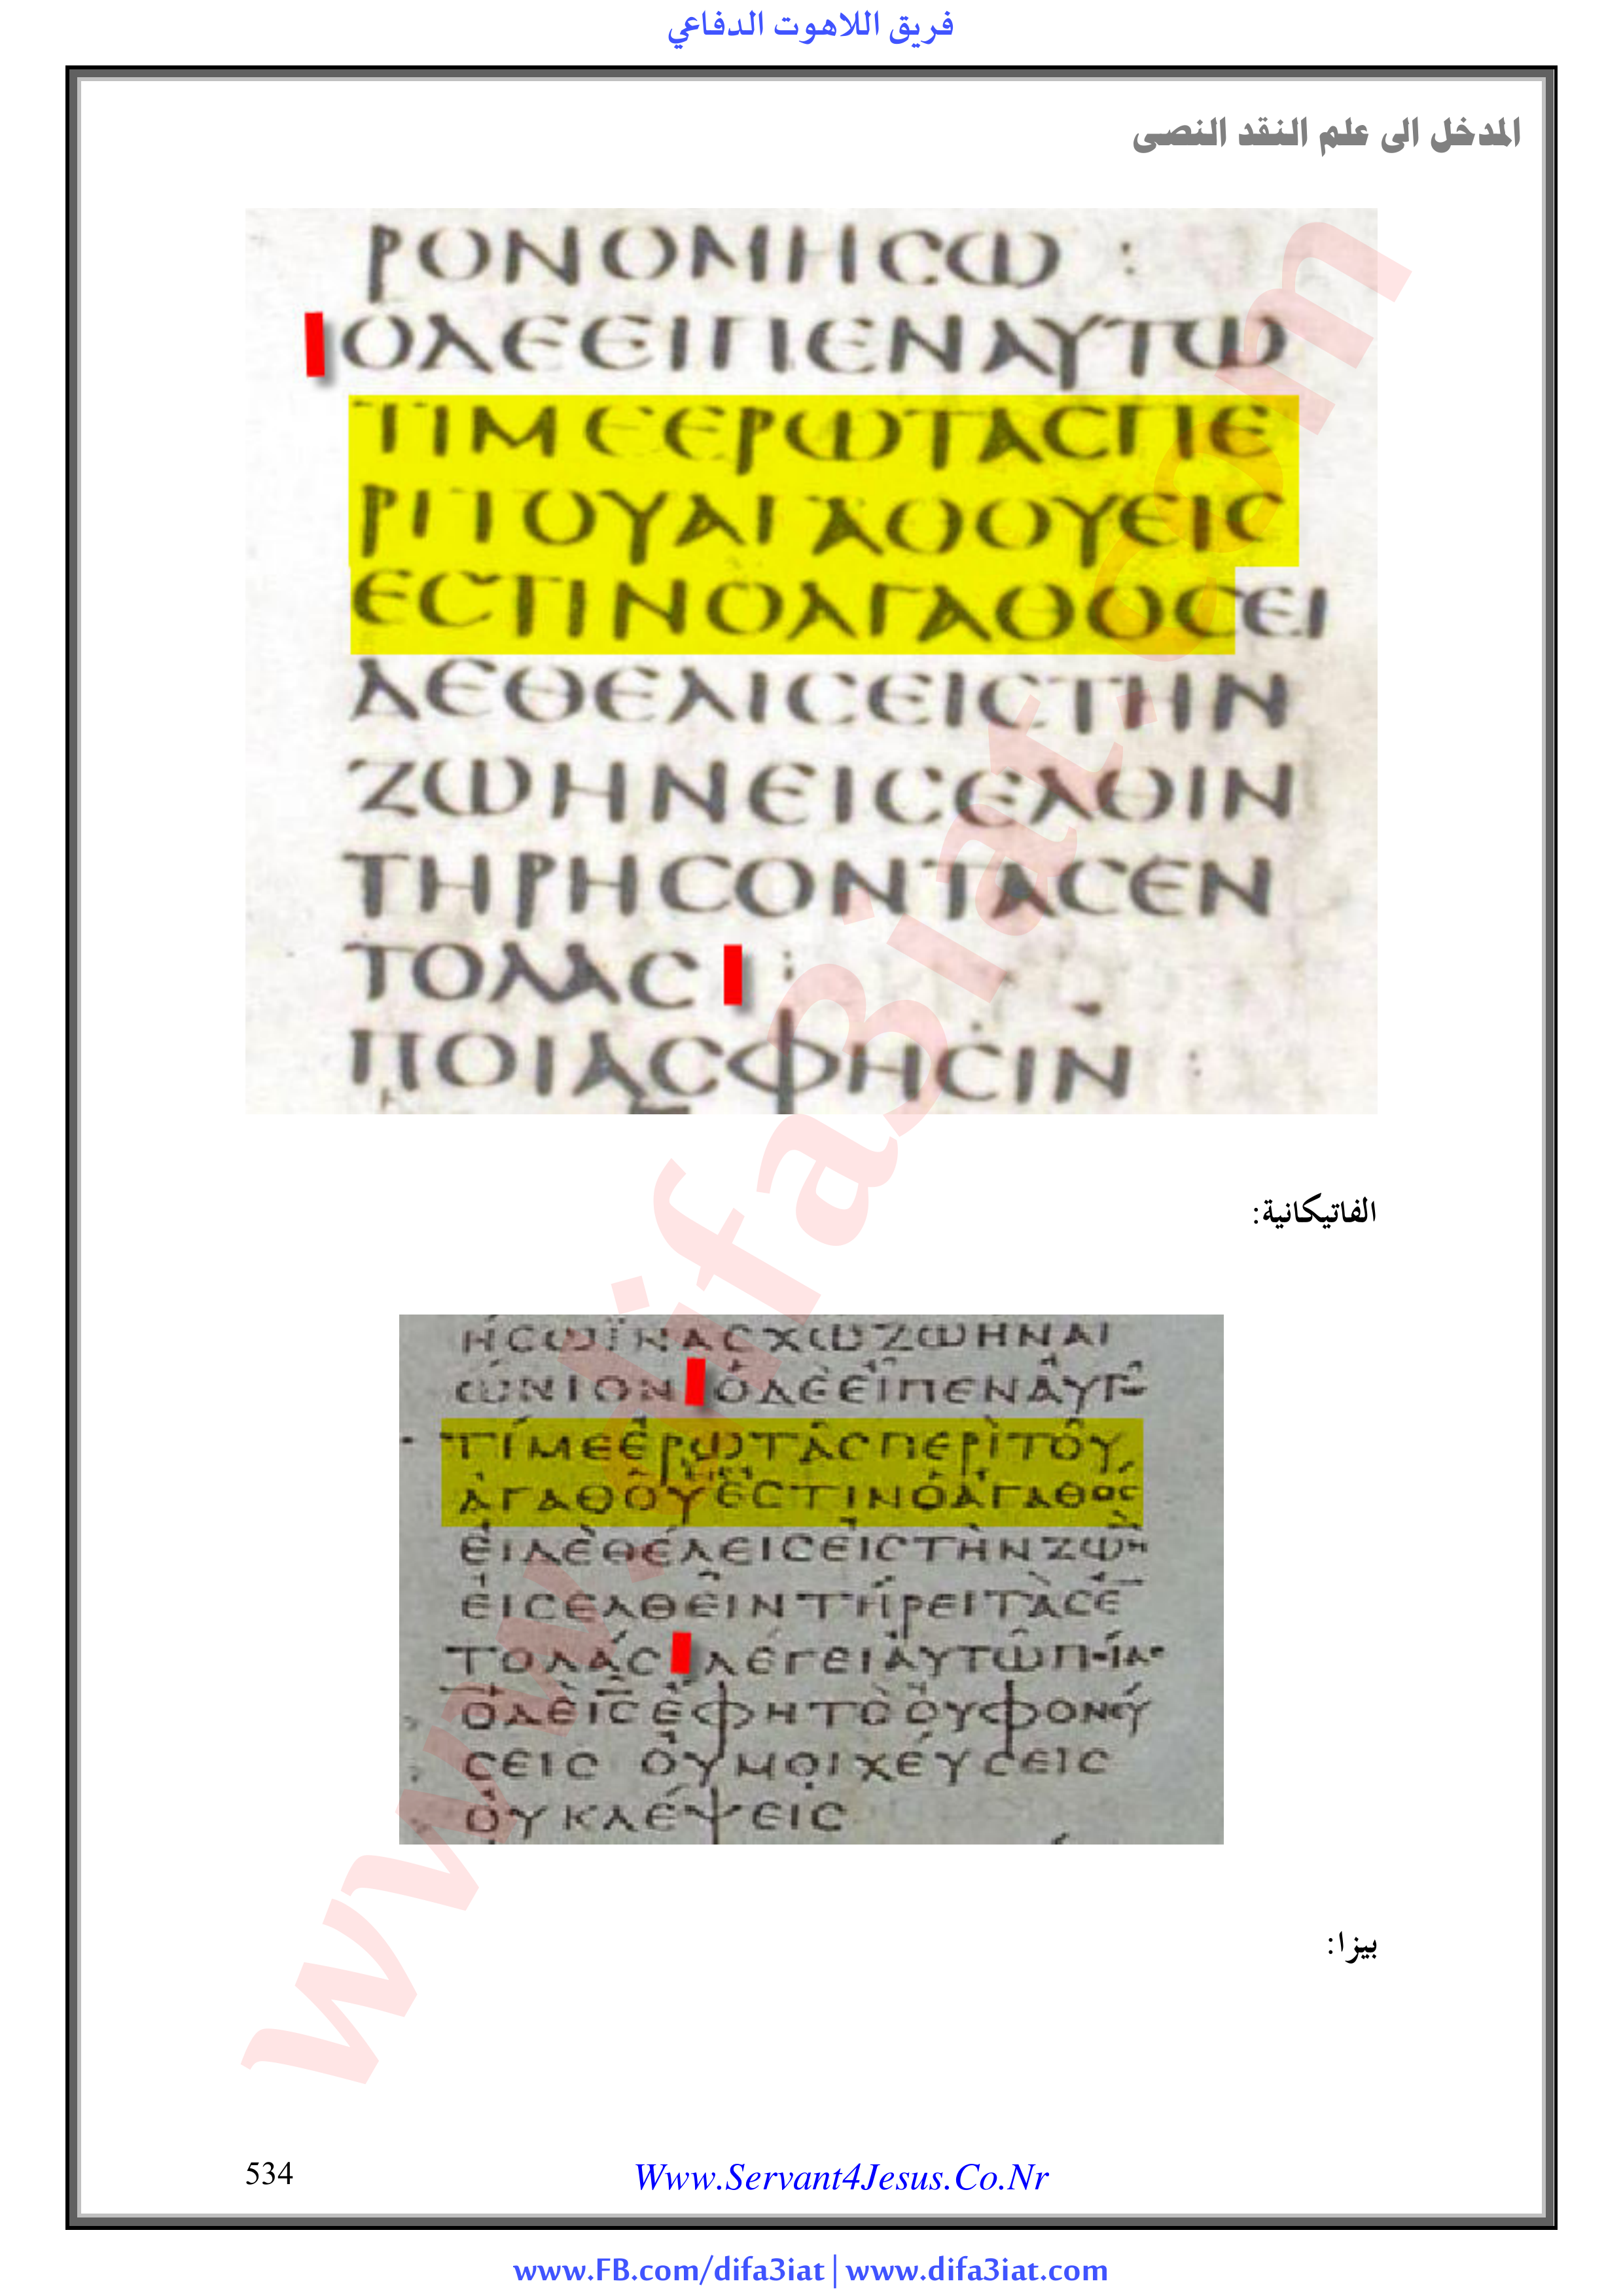 فريق اللاهوت الدفاعي
المدخل الى علم النقد النصى
ΡΟΝΟΜΗϹΩ :
ΟΔΕΕΙΠΕΝΑΥΤΩ
ΤΙΜΕΕΡΩΤΑϹΠΕ
ΡΙΤΟΥΑΓΑΘΟΥΕΙϹ
ΕϹΤΙΝΟΑΓΑΘΟϹΕΙ
ΔΕΘΕΛΙϹΕΙϹΤΗΝ
ΖΩΗΝΕΙϹΕΛΘΙΝ
ΤΗΡΗϹΟΝΤΑϹΕΝ
ΤΟΛΑϹ :
ΠΟΙΑϹΦΗϹΙΝ :
الفاتيكانية:
ΗϹΩΪΝΑϹΧΩΖΩΗΝΑΙ
ΩΝΙΟΝ ΟΔΕΕΙΠΕΝΑΥΤΩ
ΤΙΜΕΕΡΩΤΑϹΠΕΡΙΤΟΥ
ΑΓΑΘΟΥΕϹΤΙΝΟΑΓΑΘΟϹ
ΕΙΔΕΘΕΛΕΙϹΕΙϹΤΗΝΖΩΗ
ΕΙϹΕΛΘΕΙΝΤΗΡΕΙΤΑϹΕ
ΤΟΛΑϹ ΛΕΓΕΙΑΥΤΩΠΟΙΑϹ
ΟΔΕΙϹΕΦΗΤΟΟΥΦΟΝΕΥ
ϹΕΙϹ ΟΥΜΟΙΧΕΥϹΕΙϹ
ΟΥΚΛΕΨΕΙϹ
بيزا:
534
Www.Servant4Jesus.Co.Nr
www.FB.com/difa3iat | www.difa3iat.com
www.difa3iat.com